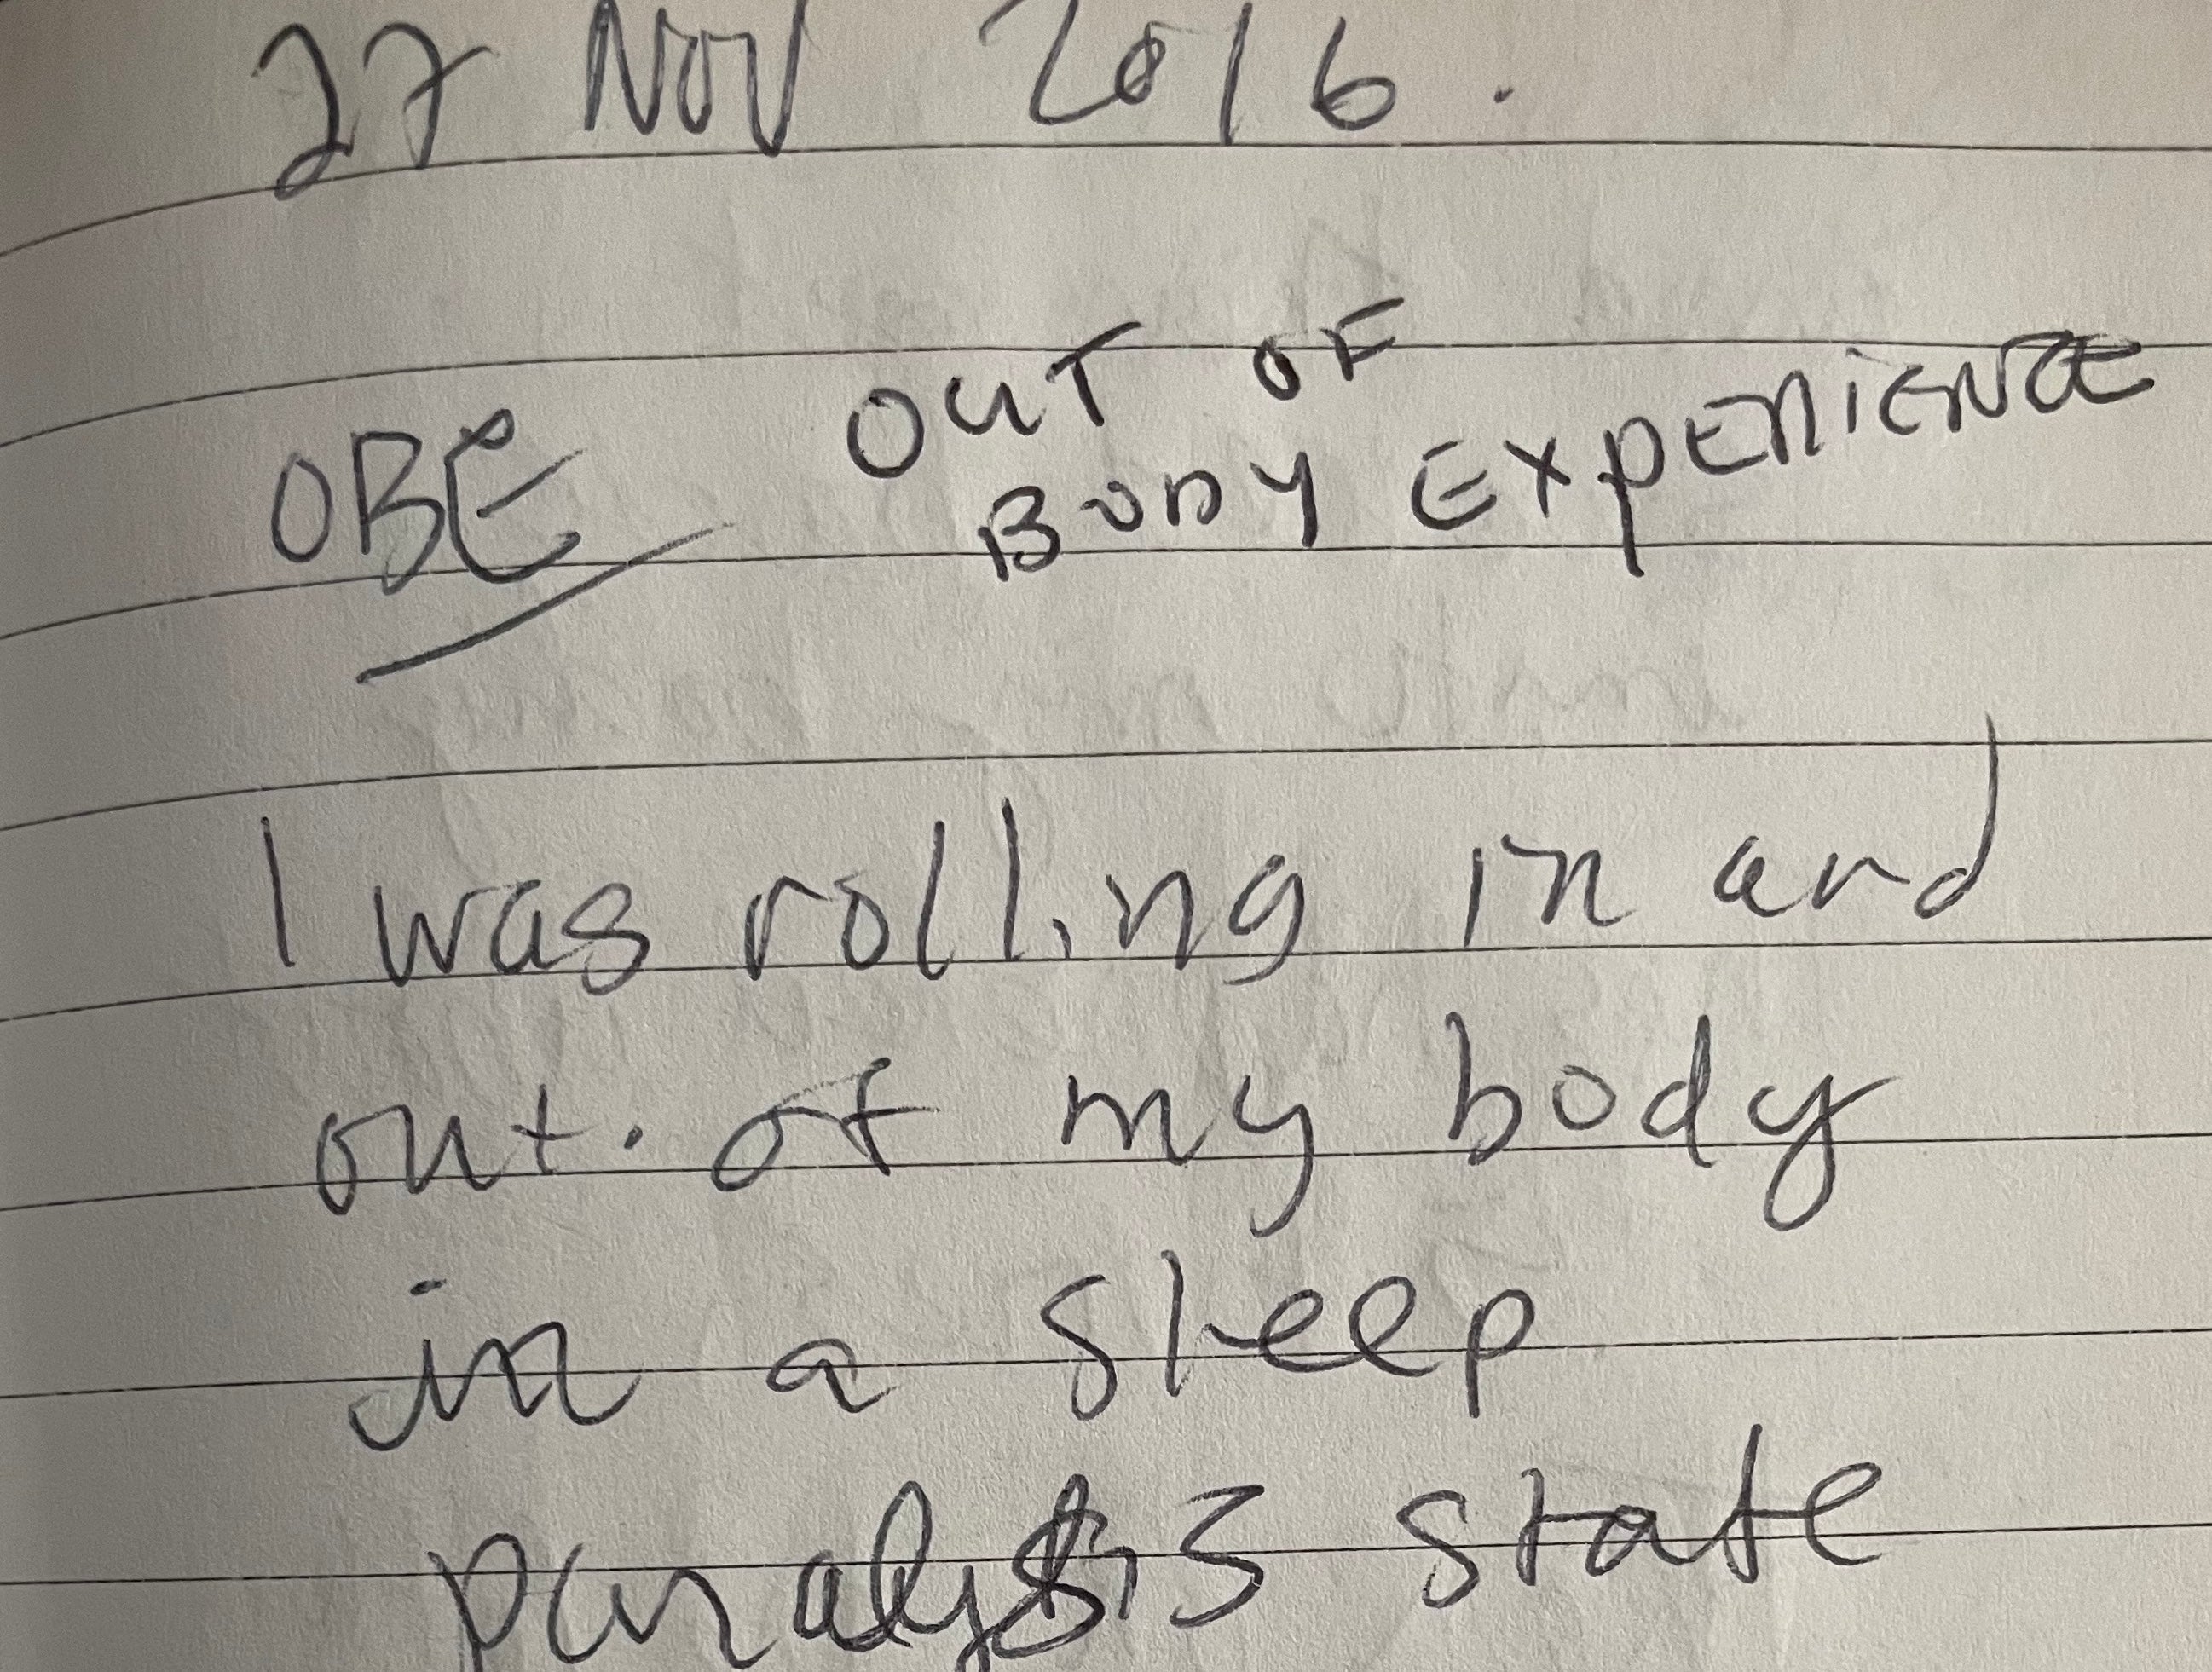 27 Nov 2016.
OBE OUT OF
BODY EXPERIENCE
I was rolling in and
out. of my body
in a sleep
paralysis state